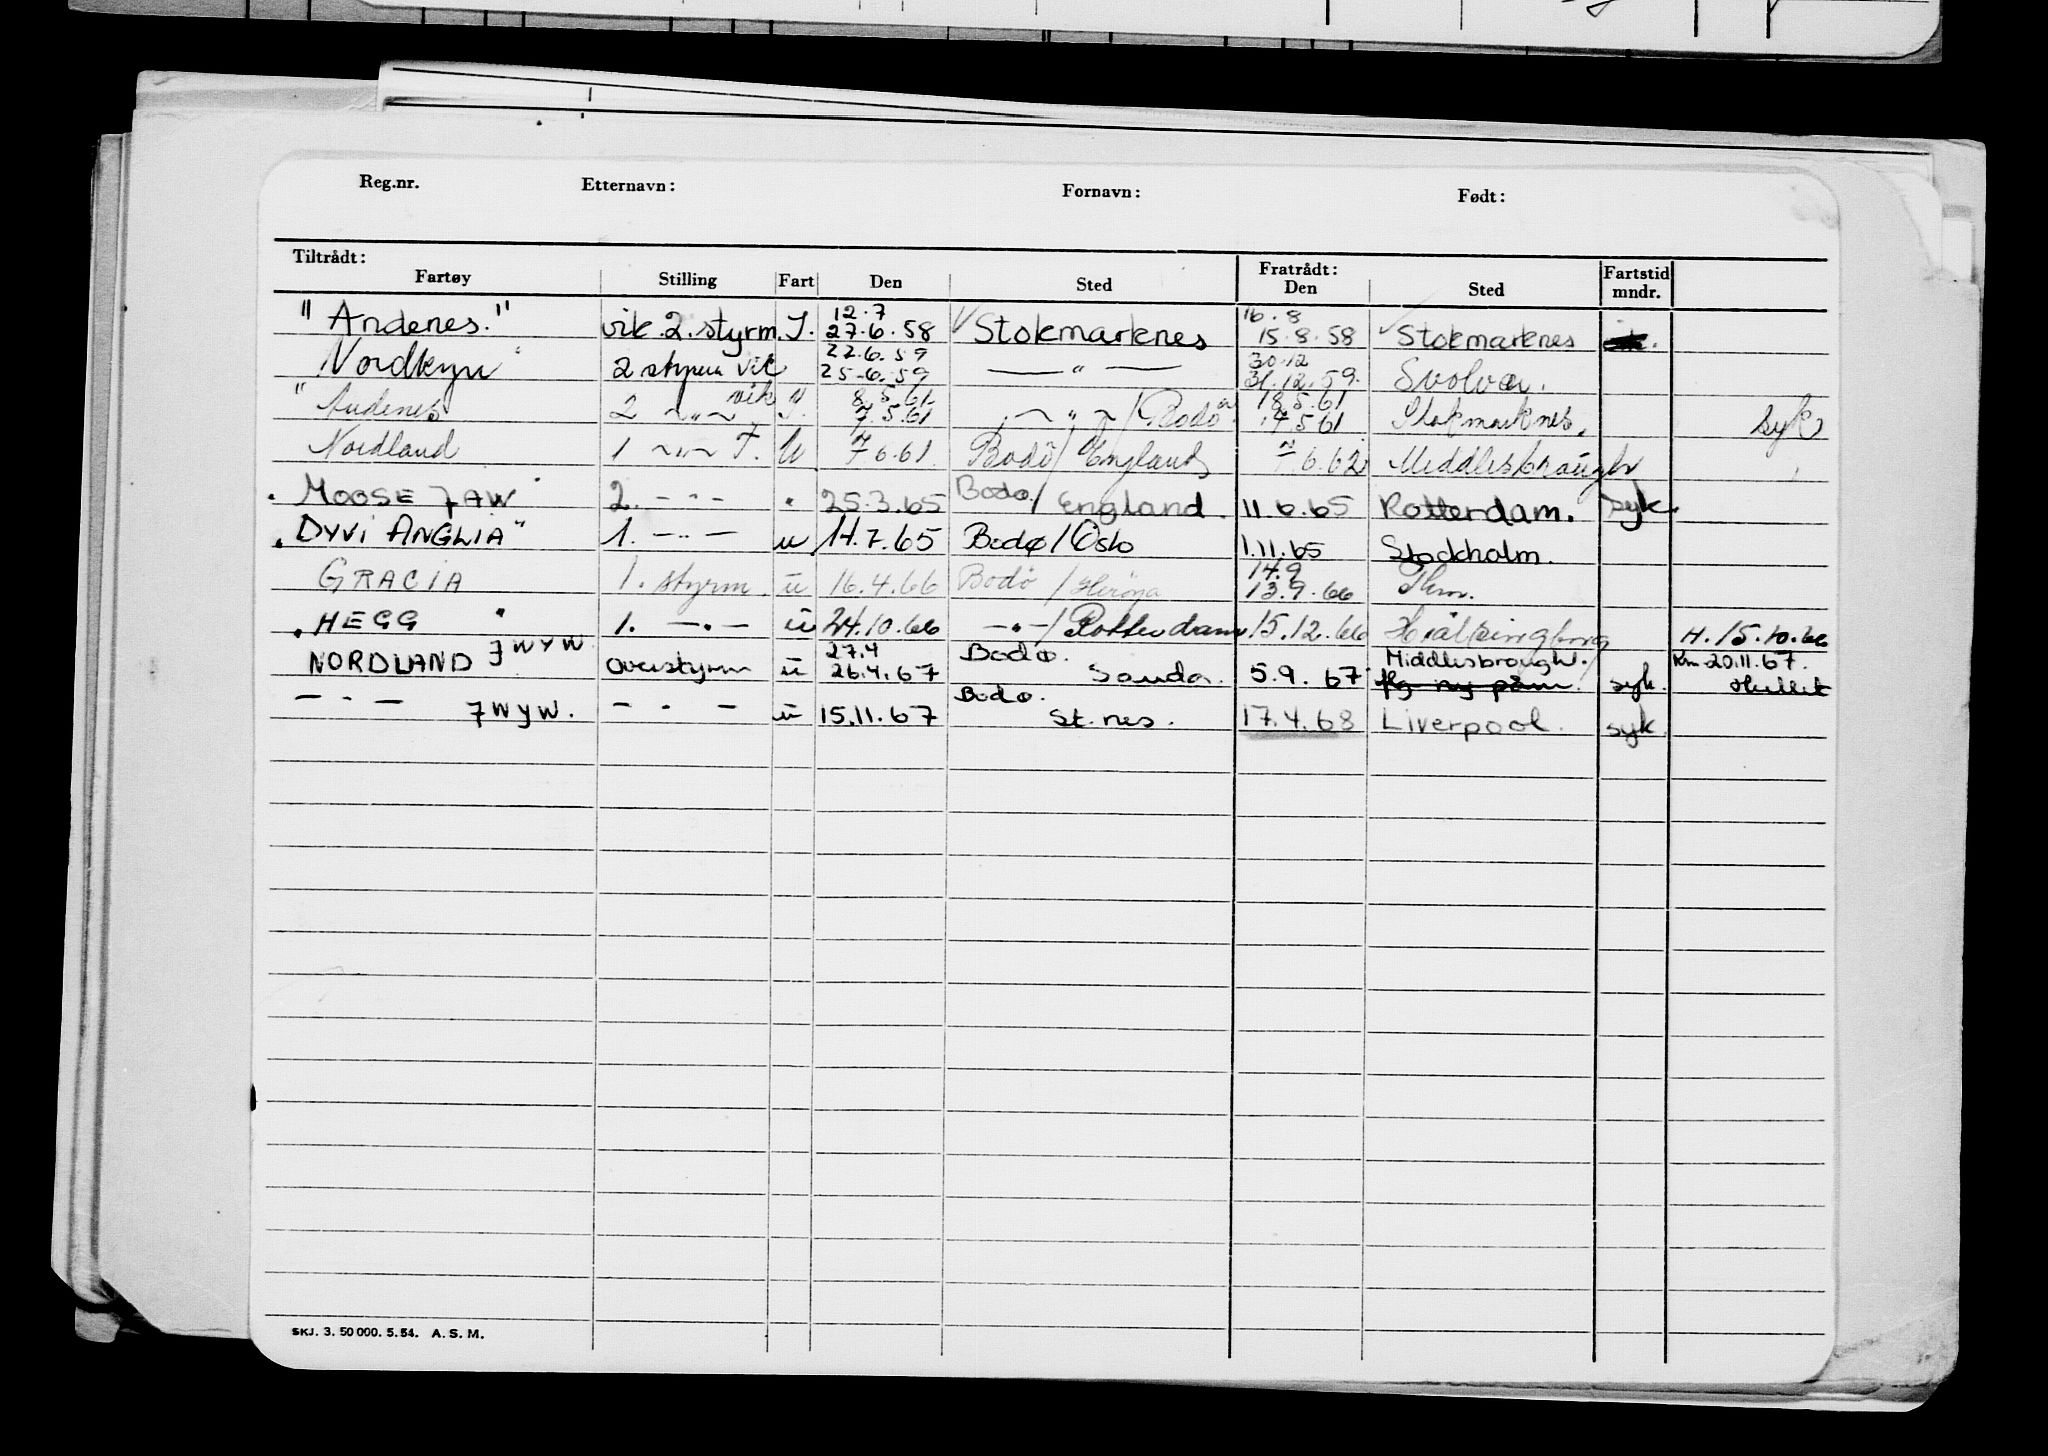 Reg.nr. Etternavn: Fornavn: Født:
Tiltrådt: Fratrådt: Fartstid
Fartøy Stilling Fart Den Sted Den Sted mndr.
12.7 16.8
"Andenes." vik. 2. styrm. I. 27.6.58 Stokmarknes 15.8.58 Stokmarknes
22.6.59 30.12
Nordkyn" 2 styrm vik 25-6.59 — " — 31.12.59. Svolvær.
vik 8.5.61 18.5.61
"Andenes 2 ~"~ I. 7.5.61 ~ " ~ / Bodø 17.5.61 Stokmarknes. syk
Nordland 1 ~"~ F. U 7 6.61. Bodö / England 6.62 Middlesbrough
"MOOSE JAW" 2. - " - " 25.3.65 Bodø / England. 11.6.65 Rotterdam. syk.
"DYVI ANGLIA" 1. - " - u 14.7.65 Bodø / Oslo 1.11.65 Stockholm.
14.9
GRACIA 1. styrm. u 16.4.66 Bodö / Herøya 13.9.66 Thm.
"HEGG" 1. - " - u 24.10.66 - " - / Rotterdam 15.12.66 Hälsingborg H. 15.10.66
JWYW 27.4 Bodø. Middlesbrough. Km 20.11.67.
NORDLAND overstyrm u 26.4.67 Sauda. 5.9.67 syk.
— " — JWYW. — " — u 15.11.67 Bodø. St.nes. 17.4.68 Liverpool. syk.
SKJ. 3. 50 000. 5. 54. A. S. M.